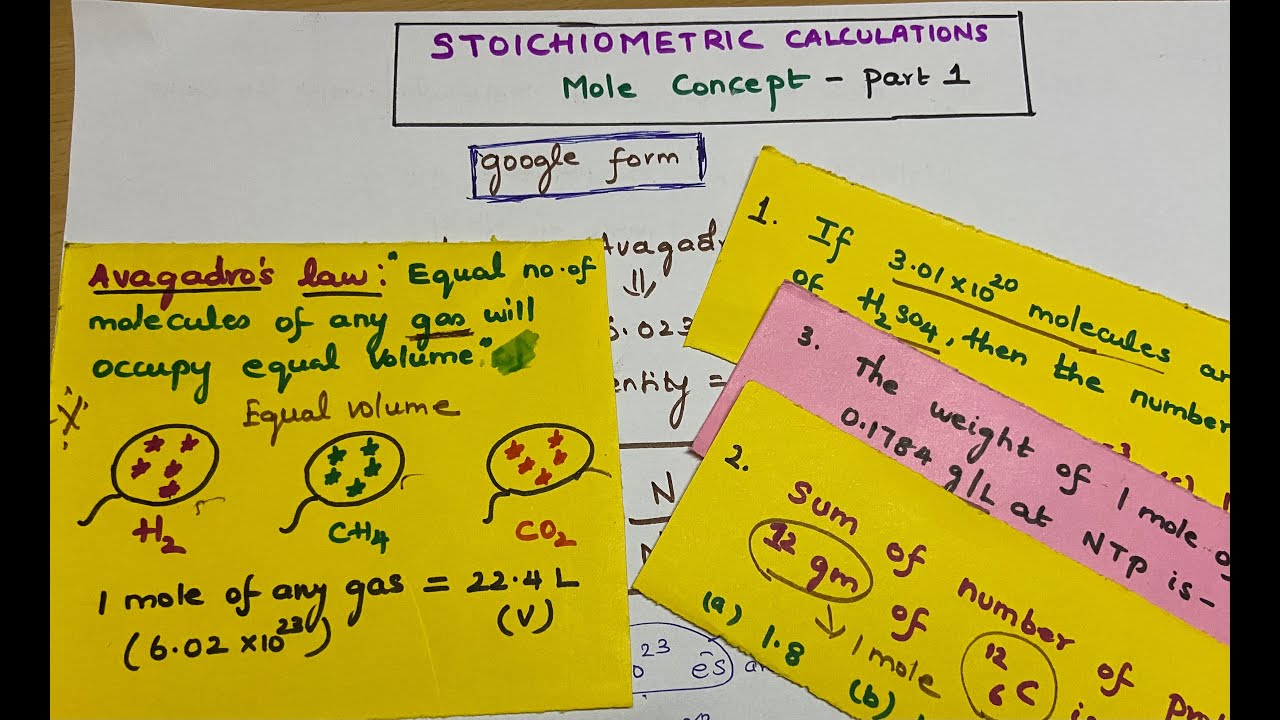 STOICHIOMETRIC CALCULATIONS
Mole Concept - part 1
google form
Avagadr
⇓
6.023
entity =
N
N
23 ēs
Avagadro's law: "Equal no. of
molecules of any gas will
occupy equal volume."
Equal volume
H₂ CH₄ CO₂
1 mole of any gas = 22.4 L
(6.02 × 10²³) (V)
1. If 3.01 × 10²⁰ molecules
of H₂SO₄, then the number
3. The weight of 1 mole
0.1784 g/L at NTP is -
2. Sum of number of
12 gm of ¹²₆C
→ 1 mole
(a) 1.8 (b)